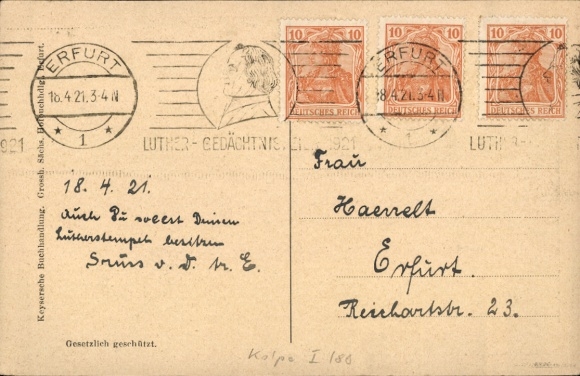 10 10 10 10 10 10
DEUTSCHES REICH DEUTSCHES REICH DEUTSCHES REICH
ERFURT
18.4.21.3-4 N
* 1 *
ERFURT
18.4.21.3-4 N
* 1 *
1921
LUTHER-GEDÄCHTNIS
1921
LUTHER-
Keysersche Buchhandlung. Grossh. Sächs. Hofbuchhdlg. Erfurt.
18. 4. 21.
Auch Du sollst Deinen
Lutherstempel besitzen
Gruss v. D. tr. E.
Gesetzlich geschützt.
Frau
Erfurt.
Reichartstr. 23.
Kolpe I/86